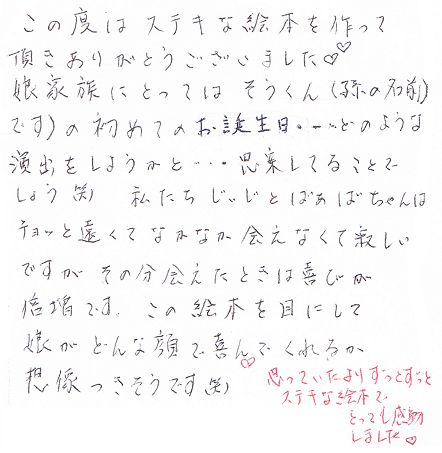 この度は ステキな絵本を作って
頂きありがとうございました♡♡
娘家族にとっては そうくん(孫の名前
です)の初めてのお誕生日・・・どのような
演出をしようかと・・・思案してることで
しょう(笑) 私たち じぃじとばぁばちゃんは
チョッと遠くて なかなか会えなくて寂しい
ですが その分会えたときは喜びが
倍増です。この絵本を目にして
娘が どんな顔で喜んでくれるか
想像つきそうです(笑)♡
思っていたよりずっとずっと
ステキな絵本で
とっても感動
しました♡